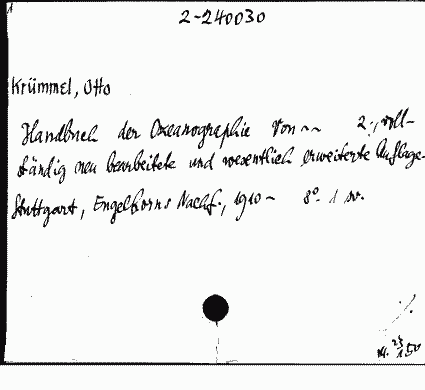 2-240030
Krümmel, Otto
Handbuch der Ozeanographie von ~~ 2., voll-
ständig neu bearbeitete und wesentlich erweiterte Auflage.
Stuttgart, Engelhorns Nachf., 1910 ~ 8°. 1 sv.